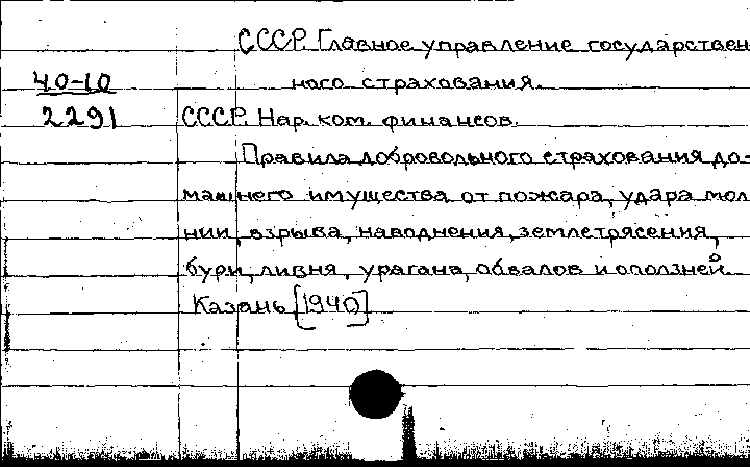 СССР. Главное управление государствен
40-10 ного страхования.
2291 СССР. Нар. ком. финансов.
Правила добровольного страхования до-
машнего имущества от пожара, удара мол
нии, взрыва, наводнения, землетрясения,
бури, ливня, урагана, обвалов и оползней
Казань [1940]